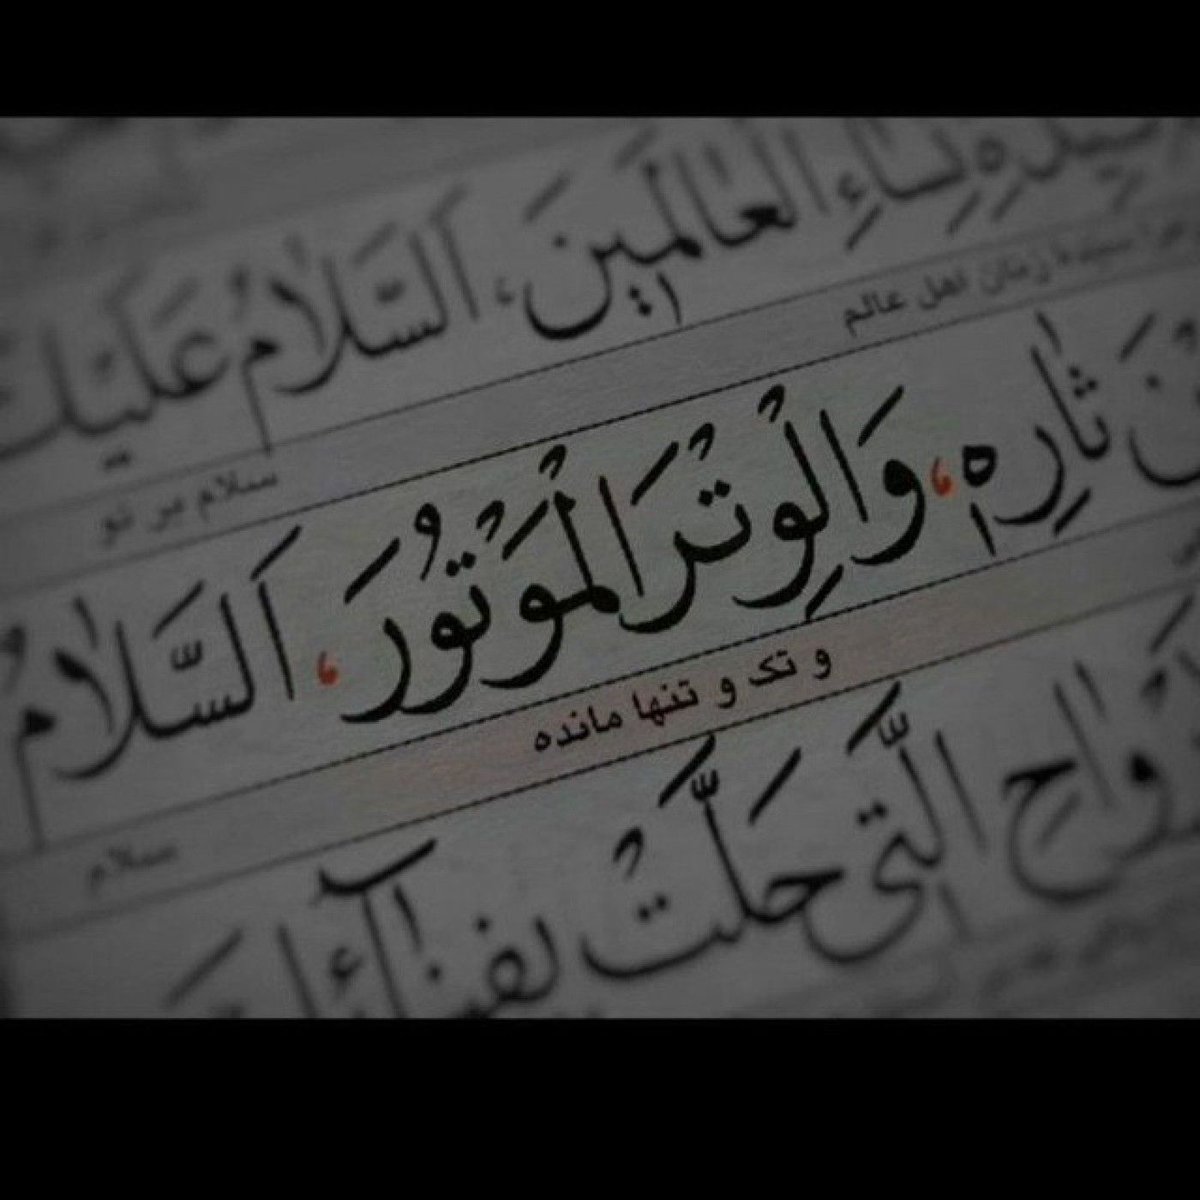 سَيِّدَةِ نِسَاءِ الْعَالَمِينَ، اَلسَّلَامُ عَلَيْكَ
سیده زنان اهل عالم سلام بر تو
بْنَ ثَارِهِ، وَالْوِتْرَ الْمَوْتُورَ، اَلسَّلَامُ
و تک و تنها مانده سلام
الَّتِی حَلَّتْ بِفِنَآئِكَ